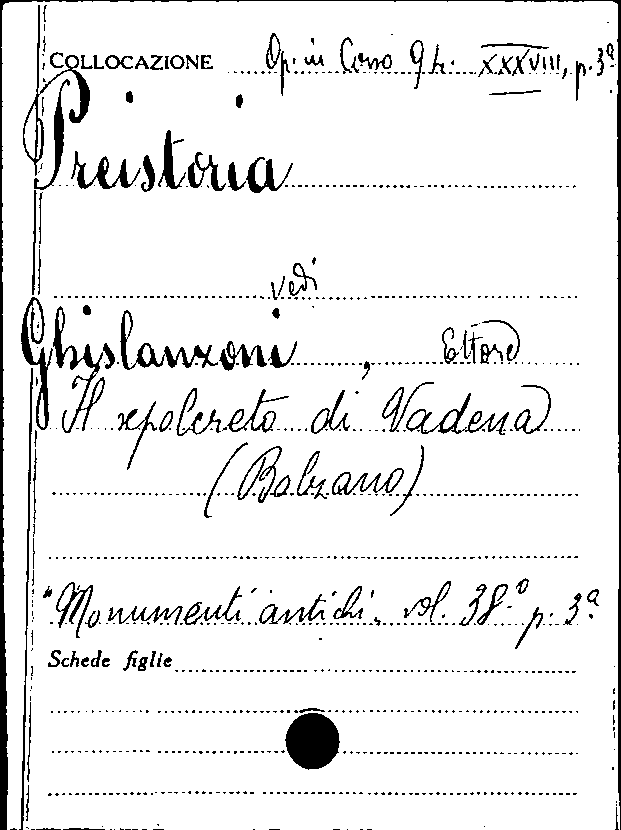 COLLOCAZIONE Op. in Corso 9 h. XXXVIII, p. 3ª
Preistoria
vedi
Ghislanzoni, Ettore
Il sepolcreto di Vadena
(Bolzano)
"Monumenti antichi„ vol. 38.º p. 3ª
Schede figlie